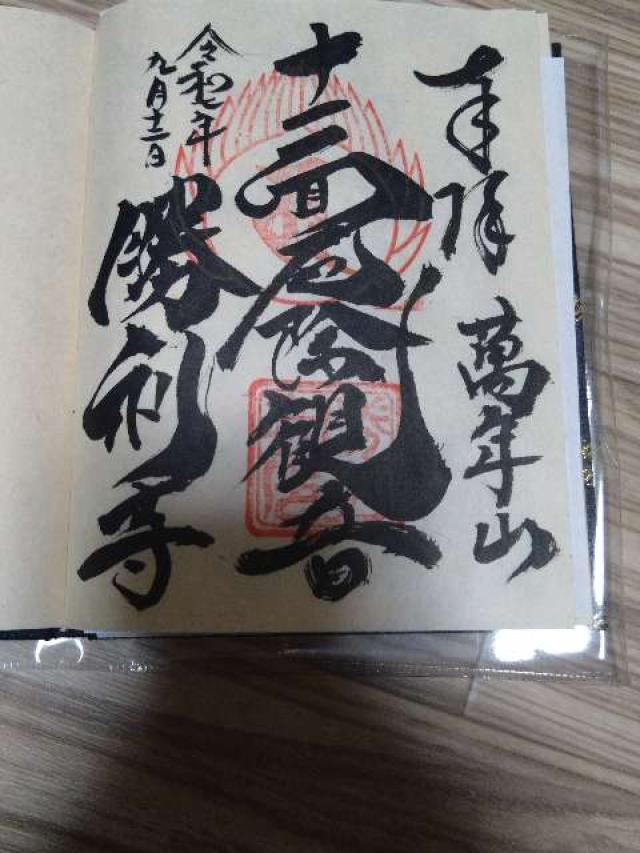 奉拝
萬年山
十一面厄除観音
令和七年
九月十二日
勝利寺